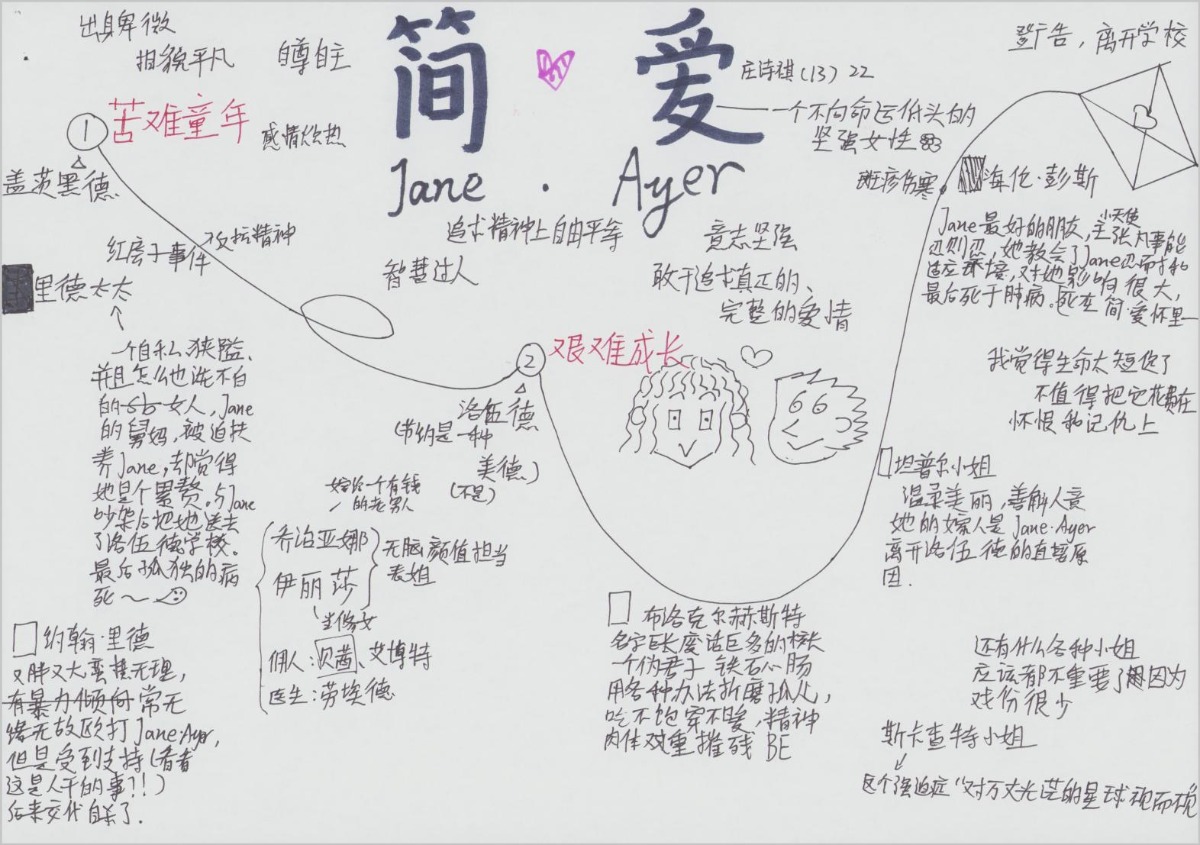 出身卑微
相貌平凡
自尊自主
简爱
庄诗祺(13) 22
登广告，离开学校
——一个不向命运低头的
坚强女性
① 苦难童年
感情炽热
Jane . Ayer
盖茨黑德
斑疹伤寒
海伦·彭斯
Jane最好的朋友，小天使
主张凡事能
忍则忍，她教会了Jane忍耐和
适应环境，对她影响很大，
最后死于肺病。死在简·爱怀里—
红房子事件
反抗精神
追求精神上自由平等
意志坚强
智慧过人
敢于追求真正的、
完整的爱情
里德太太
一个自私狭隘、
并且怎么也洗不白
的sb女人，Jane
的舅妈，被迫扶
养Jane，却觉得
她是个累赘。与Jane
吵架后把她送去
了洛伍德学校。
最后孤独的病
死～
② 艰难成长
洛伍德
(节约是一种
美德)
(不是)
我觉得生命太短促了
不值得把它花费在
怀恨和记仇上
坦普尔小姐
温柔美丽，善解人意
她的嫁人是Jane·Ayer
离开洛伍德的直接原
因.
嫁给一个有钱
的老男人
乔治亚娜
伊丽莎
无脑颜值担当
表姐
当修女
佣人：贝茜、艾博特
医生：劳埃德
约翰·里德
又胖又大蛮横无理，
有暴力倾向常无
缘无故殴打Jane·Ayer，
但是受到支持(看看
这是人干的事?!!)
后来交代自杀了.
布洛克尔赫斯特
名字巨长废话巨多的校长
一个伪君子 铁石心肠
用各种办法折磨孤儿，
吃不饱穿不暖，精神
肉体双重摧残 BE
还有什么各种小姐
应该都不重要了因为
戏份很少
斯卡查特小姐
这个强迫症“对万丈光芒的星球视而不见